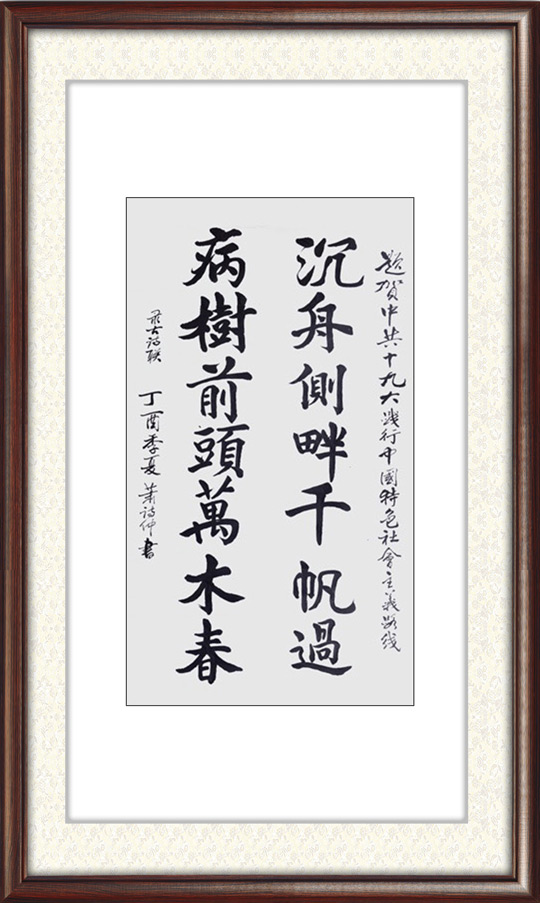 题贺中共十九大践行中國特色社會主義路线
沉舟側畔千帆過
病樹前頭萬木春
录古诗联
丁酉季夏 萧诗仲書